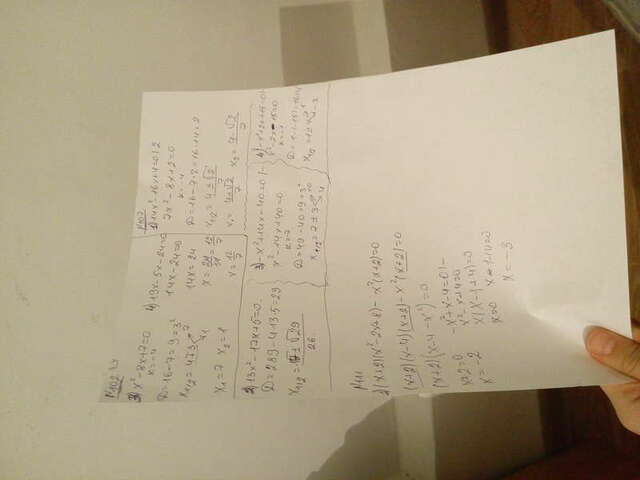 N102
3) x²-8x+7=0
k=-4
D=16-7=9=3²
x1/2=4±3
7
1
x1=7 x2=1
4) 19x-5x-24=0
14x-24=0
14x=24
x=24/14=12/7
x=12/7
N107
1) 14x²-16x+4=0|:2
7x²-8x+2=0
k=-4
D=16-7·2=16-14=2
x1/2=4±√2/7
x1=4+√2/7 x2=4-√2/7
2) 13x²-17x+5=0
D=289-4·13·5=29
x1/2=17±√29/26
3) -x²+14x-40=0|-
x²-14x+40=0
k=-7
D=49-40=9=3²
x1/2=7±3
10
4
4)
N111
(x+2)(x²-2x+8)-x²(x+2)=0
(x+2)(x-4)(x+2)-x²(x+2)=0
(x+2)(x-4-x²)=0
x+2=0
x=-2
-x²+x-4=0|-
x²-x+4=0
x(x-1+4)=0
x=0
x-1+4=0
x=-3